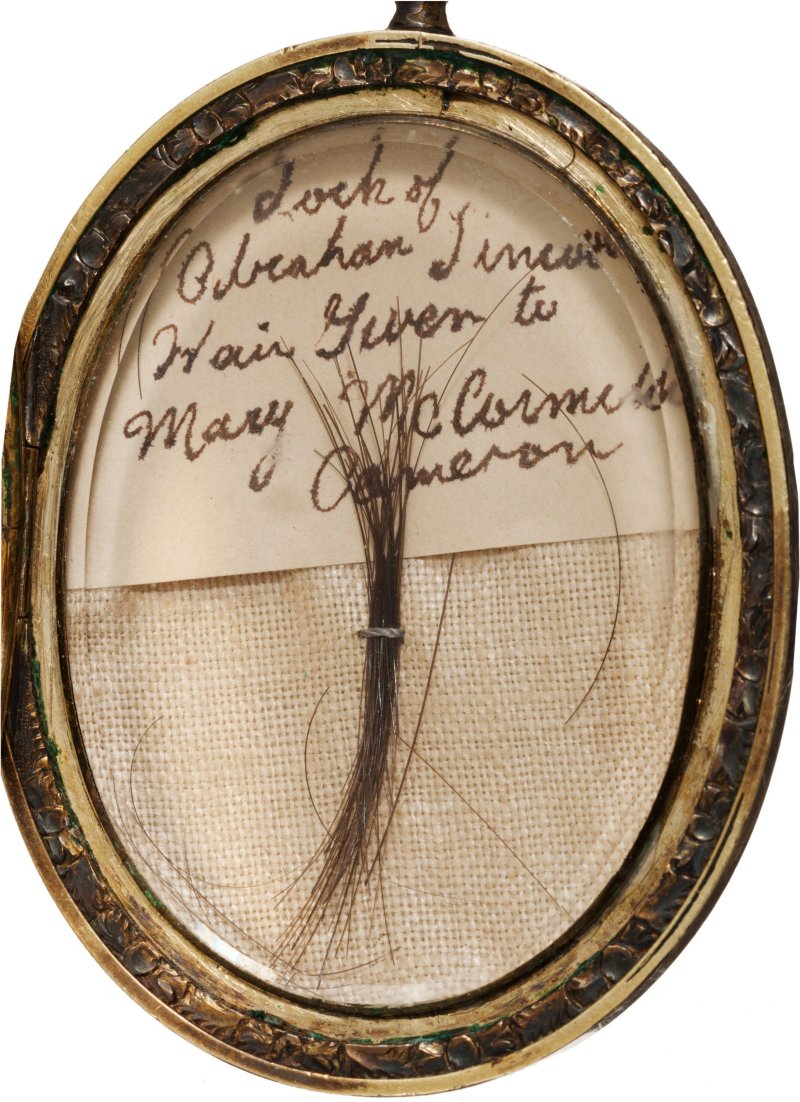 Lock of
Abraham Lincoln
Hair Given to
Mary McCormick
Cameron